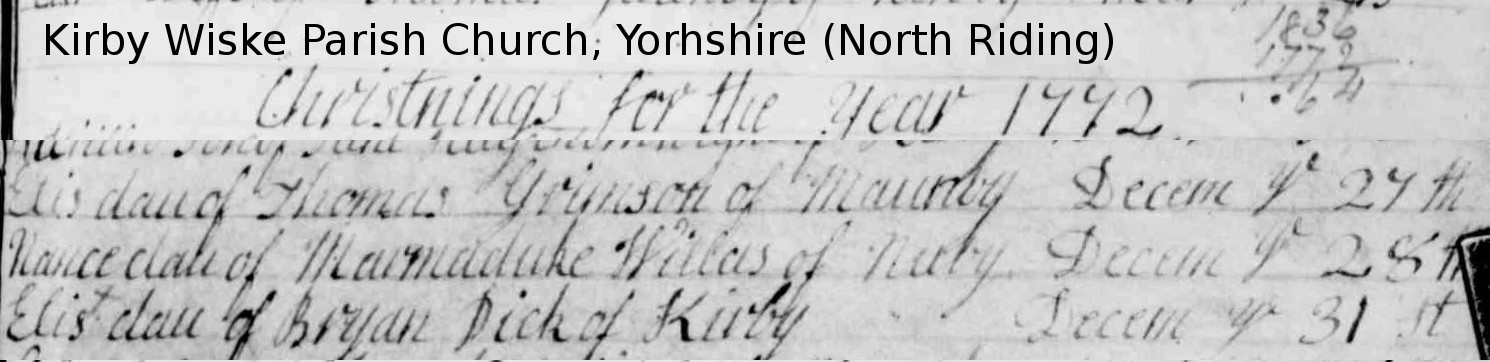 Kirby Wiske Parish Church, Yorhshire (North Riding)
1836
1772
64
Christnings for the Year 1772
Elis dau of Thomas Grimson of Maunby Decem yᵉ 27 th
Nance dau of Marmaduke Willas of Nuby Decem yᵉ 28 th
Elis dau of Bryan Dick of Kirby Decem yᵉ 31 st